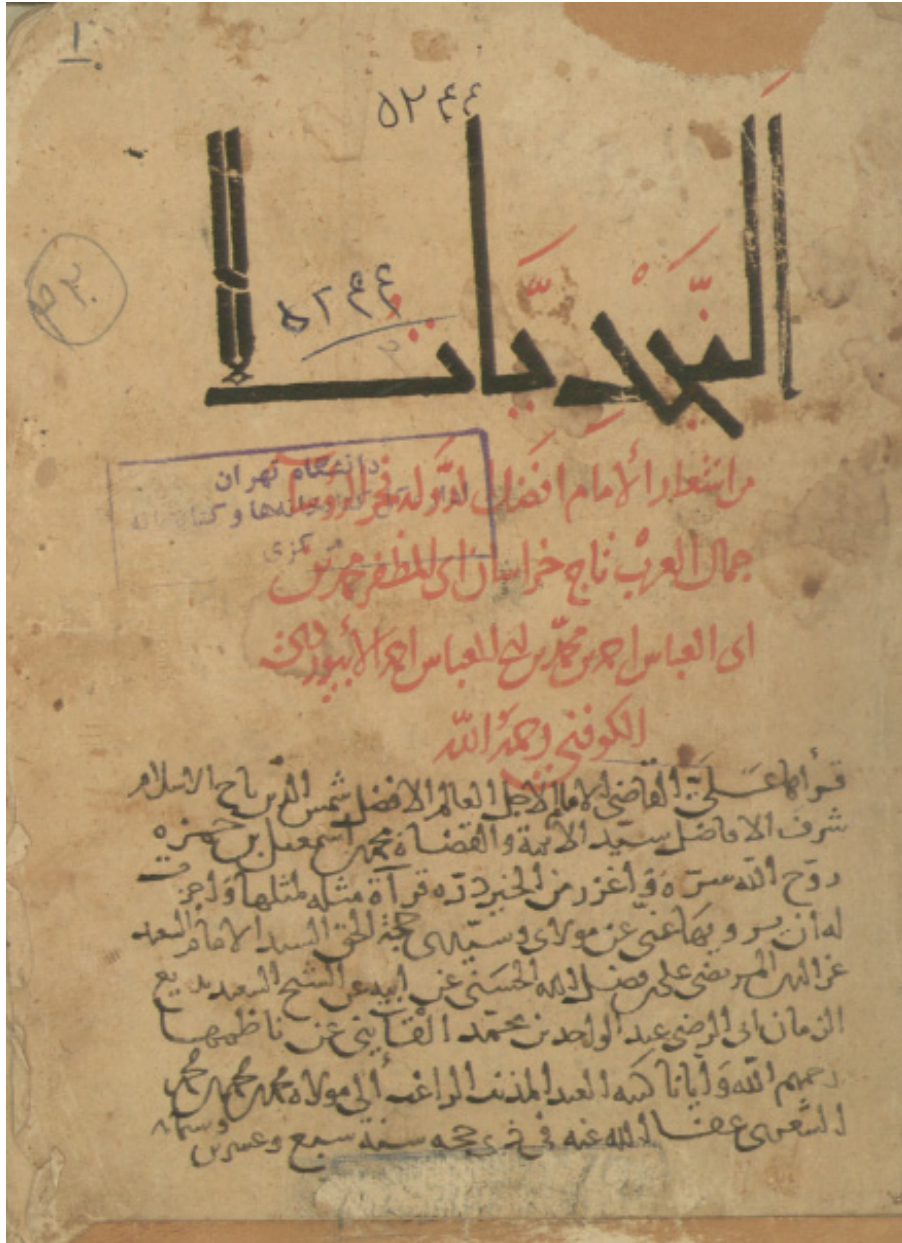 ١
٥٢٤٤
النجديات
٥٢٤٤
٣٠
دانشگاه تهران
کتابخانه
مرکزی
من اشعار الإمام افضل الدولة فخر الرؤساء
جمال العرب تاج خراسان ابى المظفر محمد بن
ابى العباس احمد بن محمد بن ابى العباس احمد الأبيوردى
الكوفنى رحمه الله
قرأها علىّ القاضى الامام الاجل العالم الافضل شمس الدين تاج الاسلام
شرف الافاضل سيد الأئمة والقضاة محمد بن اسمعيل بن حمزة
روح الله سره واغزر من الخير دره قرآة مثله لمثلها واجزت
له ان يرويها عنى عن مولاى وسيدى حجة الحق السيد الامام السعيد
عز الدين المرتضى على بن فضل الله الحسنى عن ابيه عن الشيخ السعيد بديع
الزمان ابى الرضى عبد الواحد بن محمد القاينى عن ناظمها
رحمهم الله وايانا كتبه العبد المذنب الراغب الى مولاه محمد بن محمد بن محمد
الشعرى عفا الله عنه فى ذى حجه سنة سبع وعشرين وستمائة